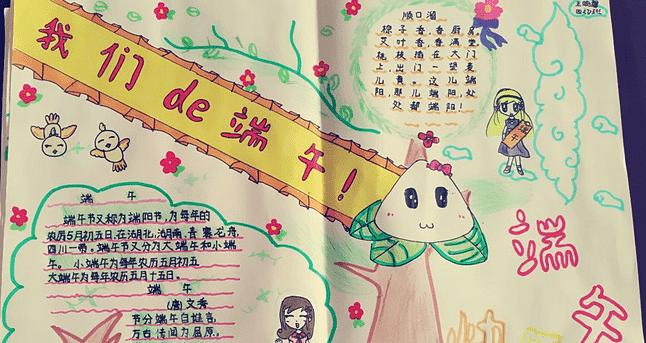 我们de端午!
顺口溜
棕子香香厨房
艾叶香,香满堂
桃枝插在大门
上,出门一望麦
儿黄。这儿端
阳,那儿端阳,处
处都端阳!
端 午
端午节又称为端阳节,为每年的
农历5月初五日,在湖北,湖南,贵
四川一带。端午节又分为大端午和小端
午。小端午为每年农历五月初五
大端午为每年农历五月十五日。
端 午
(唐)文秀
节分端午自谁言,
万古传闻为屈原。
端
午